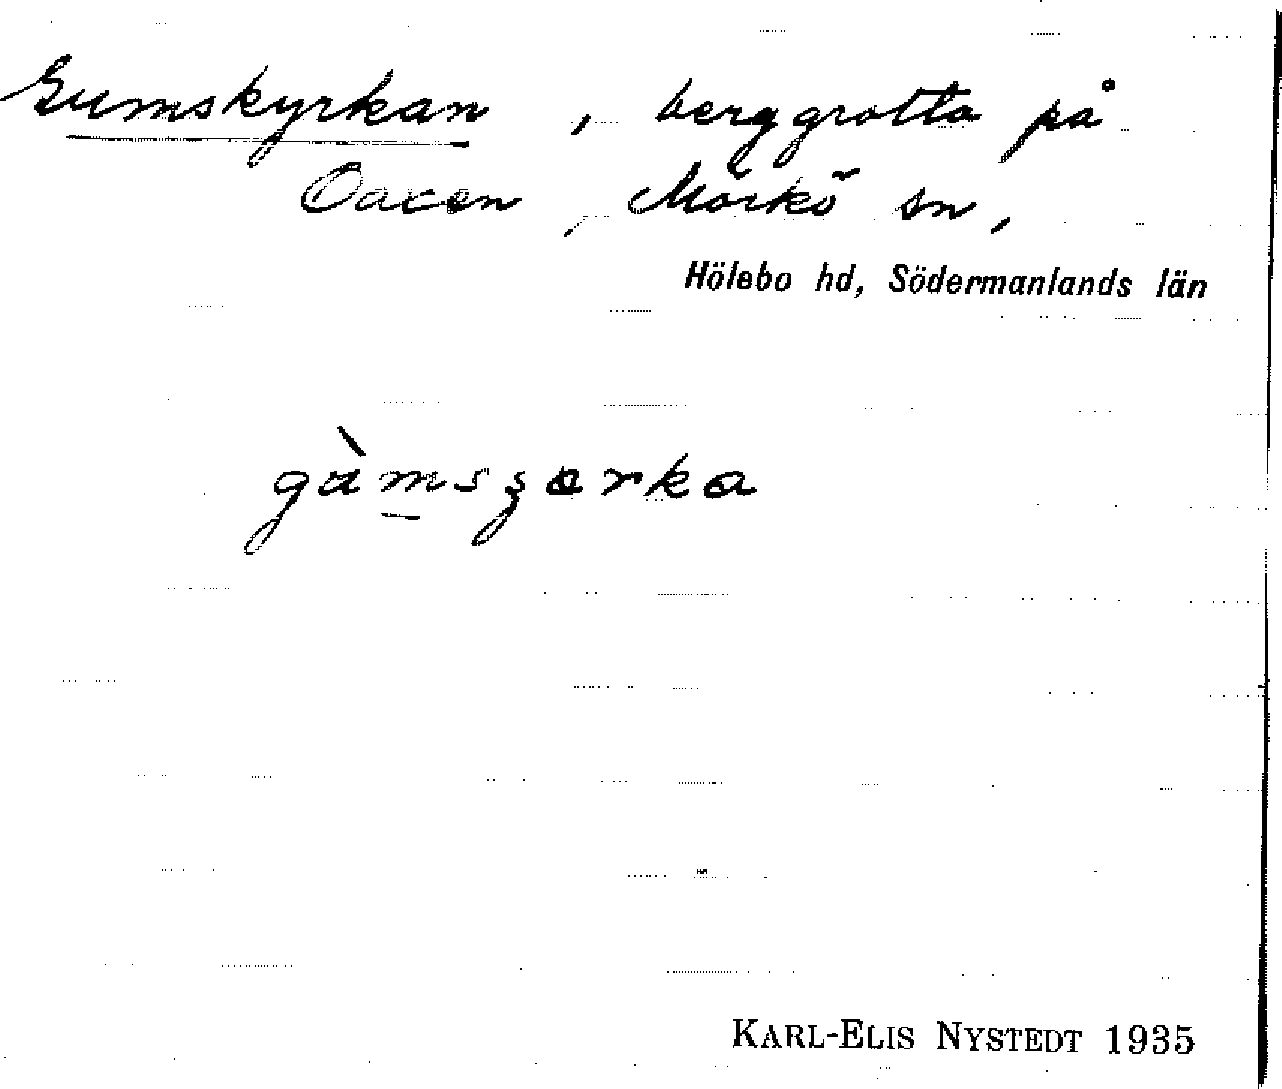 Gumskyrkan, berggrotta på
Oaxen, Mörkö sn,
Hölebo hd, Södermanlands län
gàmsʒɵrka
KARL-ELIS NYSTEDT 1935